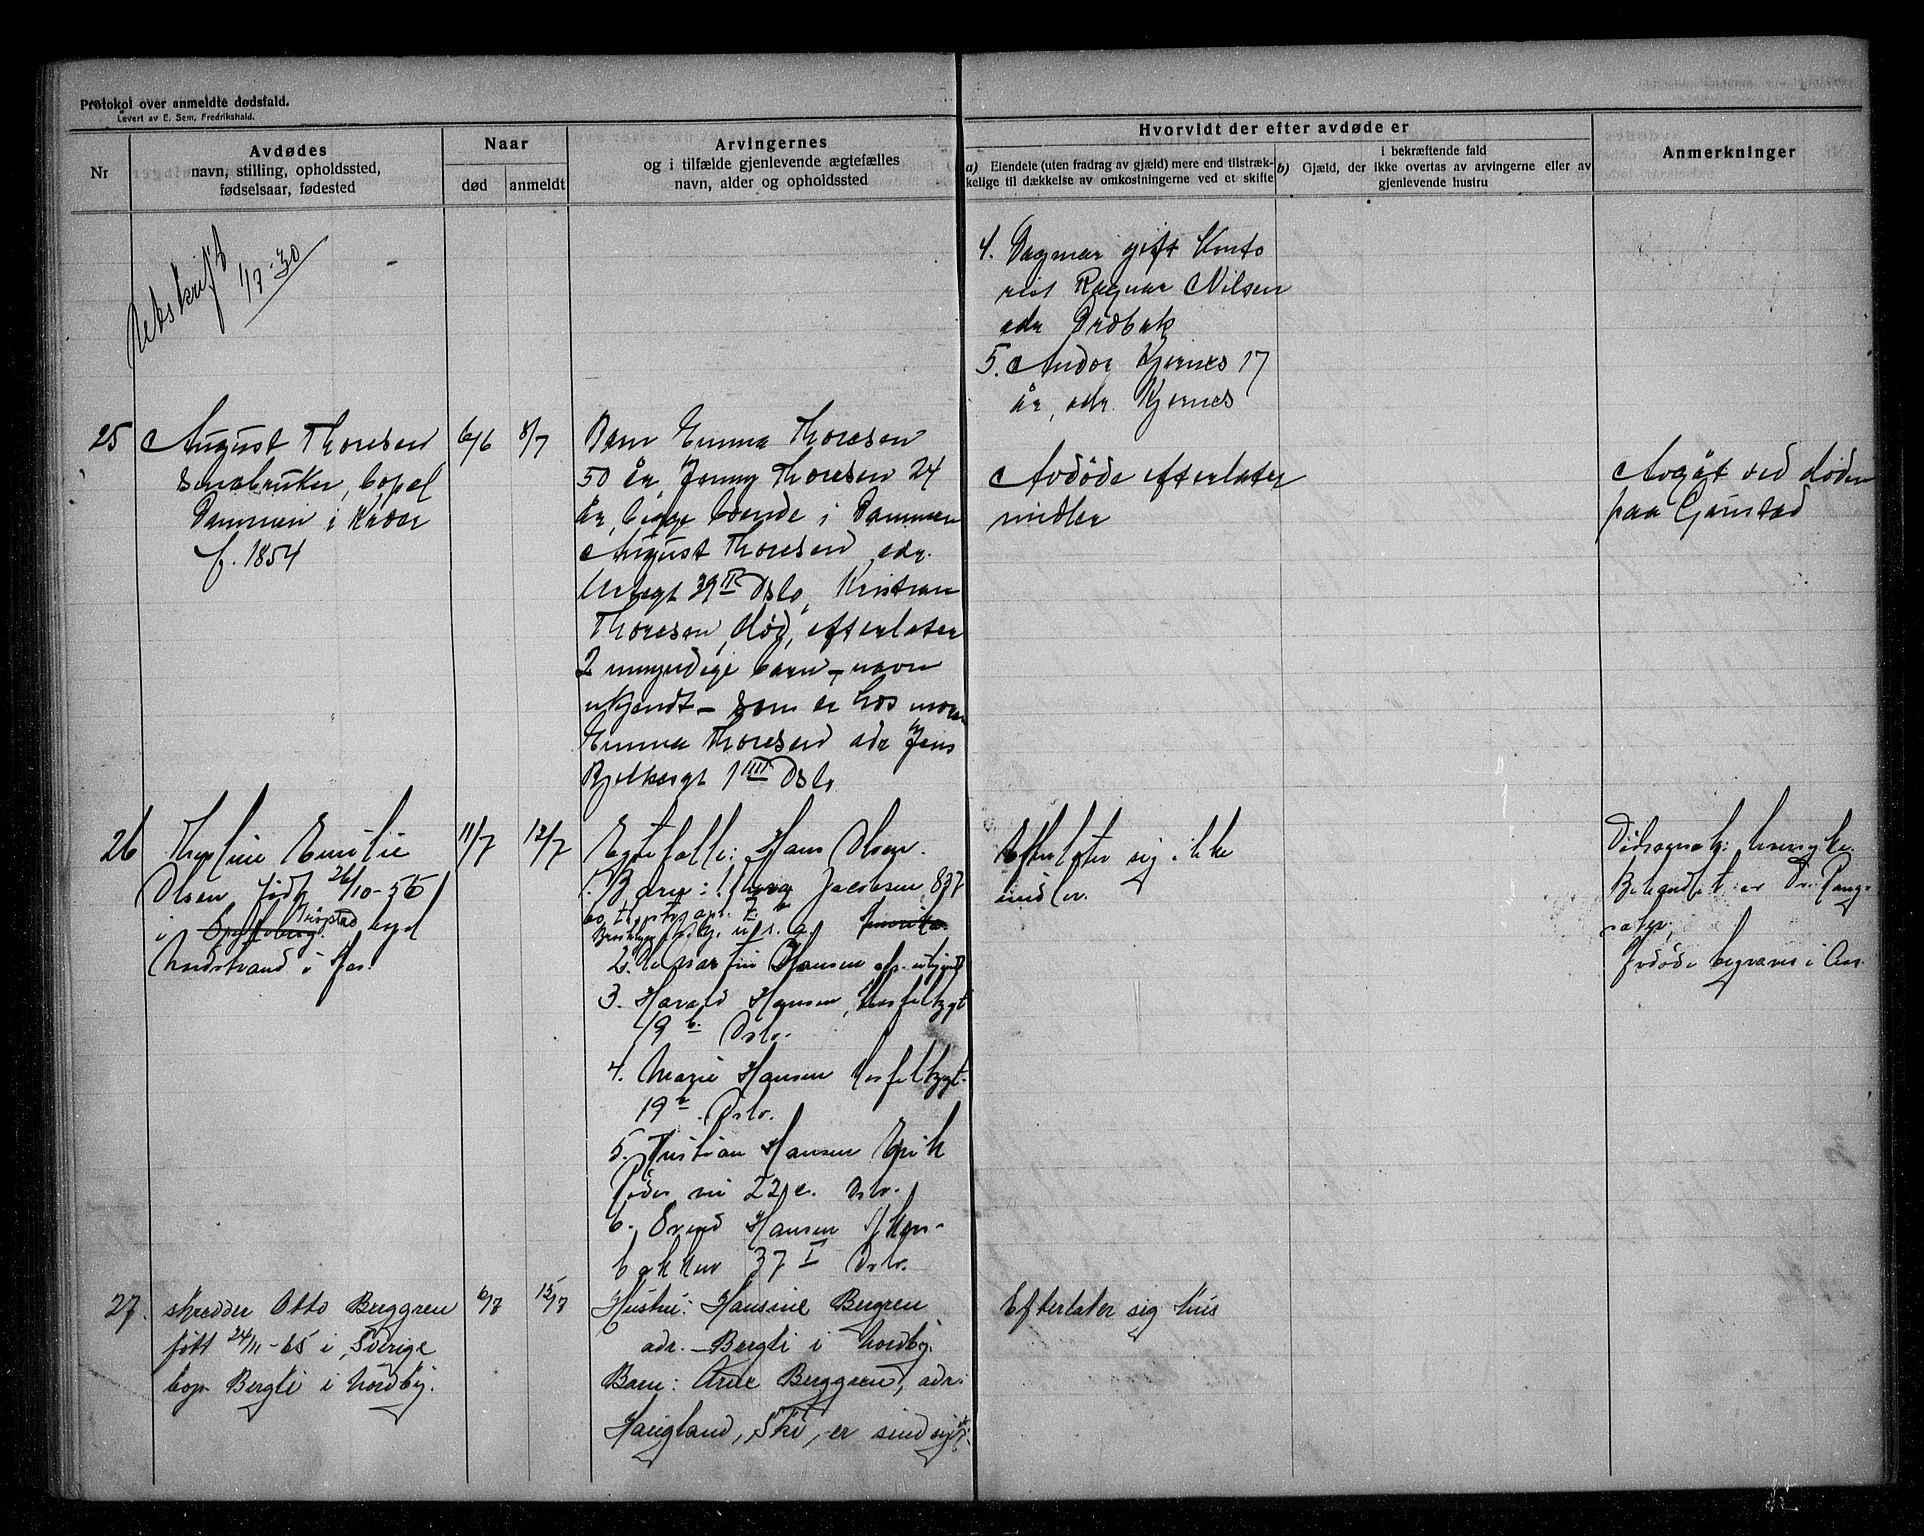 Protokol over anmeldte dødsfald.
Levert av E. Sem, Fredrikshald.
Nr
Avdødes
navn, stilling, opholdssted,
fødselsaar, fødested
Naar
død
anmeldt
Arvingernes
og i tilfælde gjenlevende ægtefælles
navn, alder og opholdssted
Hvorvidt der efter avdøde er
a) Eiendele (uten fradrag av gjæld) mere end tilstræk-
kelige til dækkelse av omkostningerne ved et skifte
i bekræftende fald
b) Gjæld, der ikke overtas av arvingerne eller av
gjenlevende hustru
Anmerkninger
Utskrift
1/7-30
4. Dagmar gift Konto
rist Ragnar Nilsen
adr Drøbak
5. Andor Kjernes 17
år, adr. Kjernes
25
August Thoresen
småbruker, bopel
Dammen i Kroer
f. 1854
6/6
8/7
Barn Emma Thoresen
50 år, Jenny Thoresen 24
år, begge boende i Dammen
August Thoresen adr.
39 II Oslo, Kristian
Thoresen, død, efterlater
2 umyndige barn - navn
ukjendt - som er hos moren
Emma Thoresen adr Jens
Bjelkesgt 1 III Oslo
Avdøde efterlater
midler
Avgåt ved døden
paa Gaustad
26
Emilie
Olsen født 26/10-56
i Spydeberg Trøpstad boyd
Nordstrand i Ås.
11/7
12/7
Egtefelle: Hans Olsen.
1. Barn: Jacobsen 837
Amerika
2. Martin Hansen adr. ukjendt
3. Harald Hansen, Herslebsgt
19 b. Oslo.
4. Marie Hansen Herslebsgt.
19 b. Oslo.
5. Kristian Hansen Erik
22 c. Oslo.
6. Hansen
bakken 37 I Oslo.
Efterlater sig ikke
midler.
Dødsårsak:
Behandlet av Dr.
Avdøde begraves i Aas.
27.
skredder Otto Berggren
født 24/11-65 i Sverige
bop Bergli i Nordby.
6/7
15/7
Hustru: Hansine Bergren
adr. Bergli i Nordby.
Barn: Arne Berggren, adr.
Haugland, Ski, er sindsigk.
Efterlater sig hus